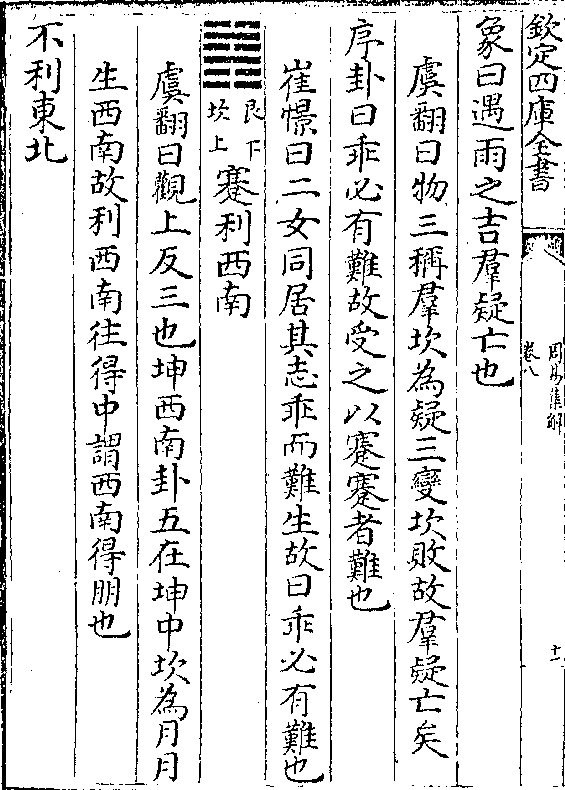 欽定四庫全書
周易集解
卷八
十一
象曰遇雨之吉羣疑亡也
虞翻曰物三稱羣坎為疑三變坎敗故羣疑亡矣
序卦曰乖必有難故受之以蹇蹇者難也
崔憬曰二女同居其志乖而難生故曰乖必有難也
艮下
坎上
蹇利西南
虞翻曰觀上反三也坤西南卦五在坤中坎為月月
生西南故利西南往得中謂西南得朋也
不利東北